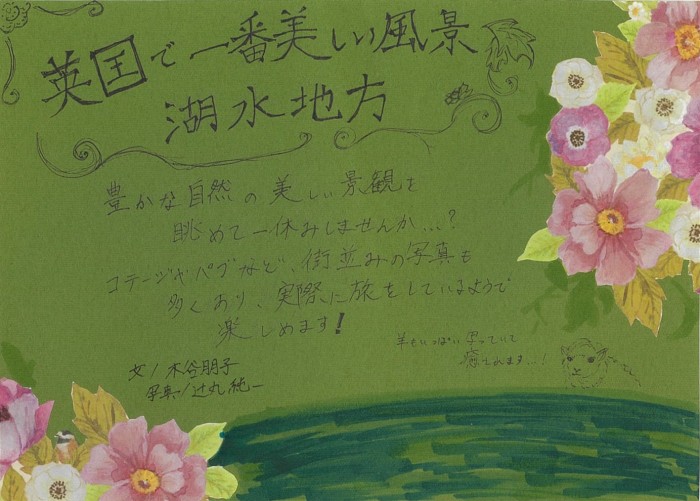 英国で一番美しい風景
湖水地方
豊かな自然の美しい景観を
眺めて一休みしませんか…?
コテージやパブなど、街並みの写真も
多くあり、実際に旅をしているようで
楽しめます!
羊もいっぱい写っていて
癒されます…!
文/木谷朋子
写真/辻丸純一